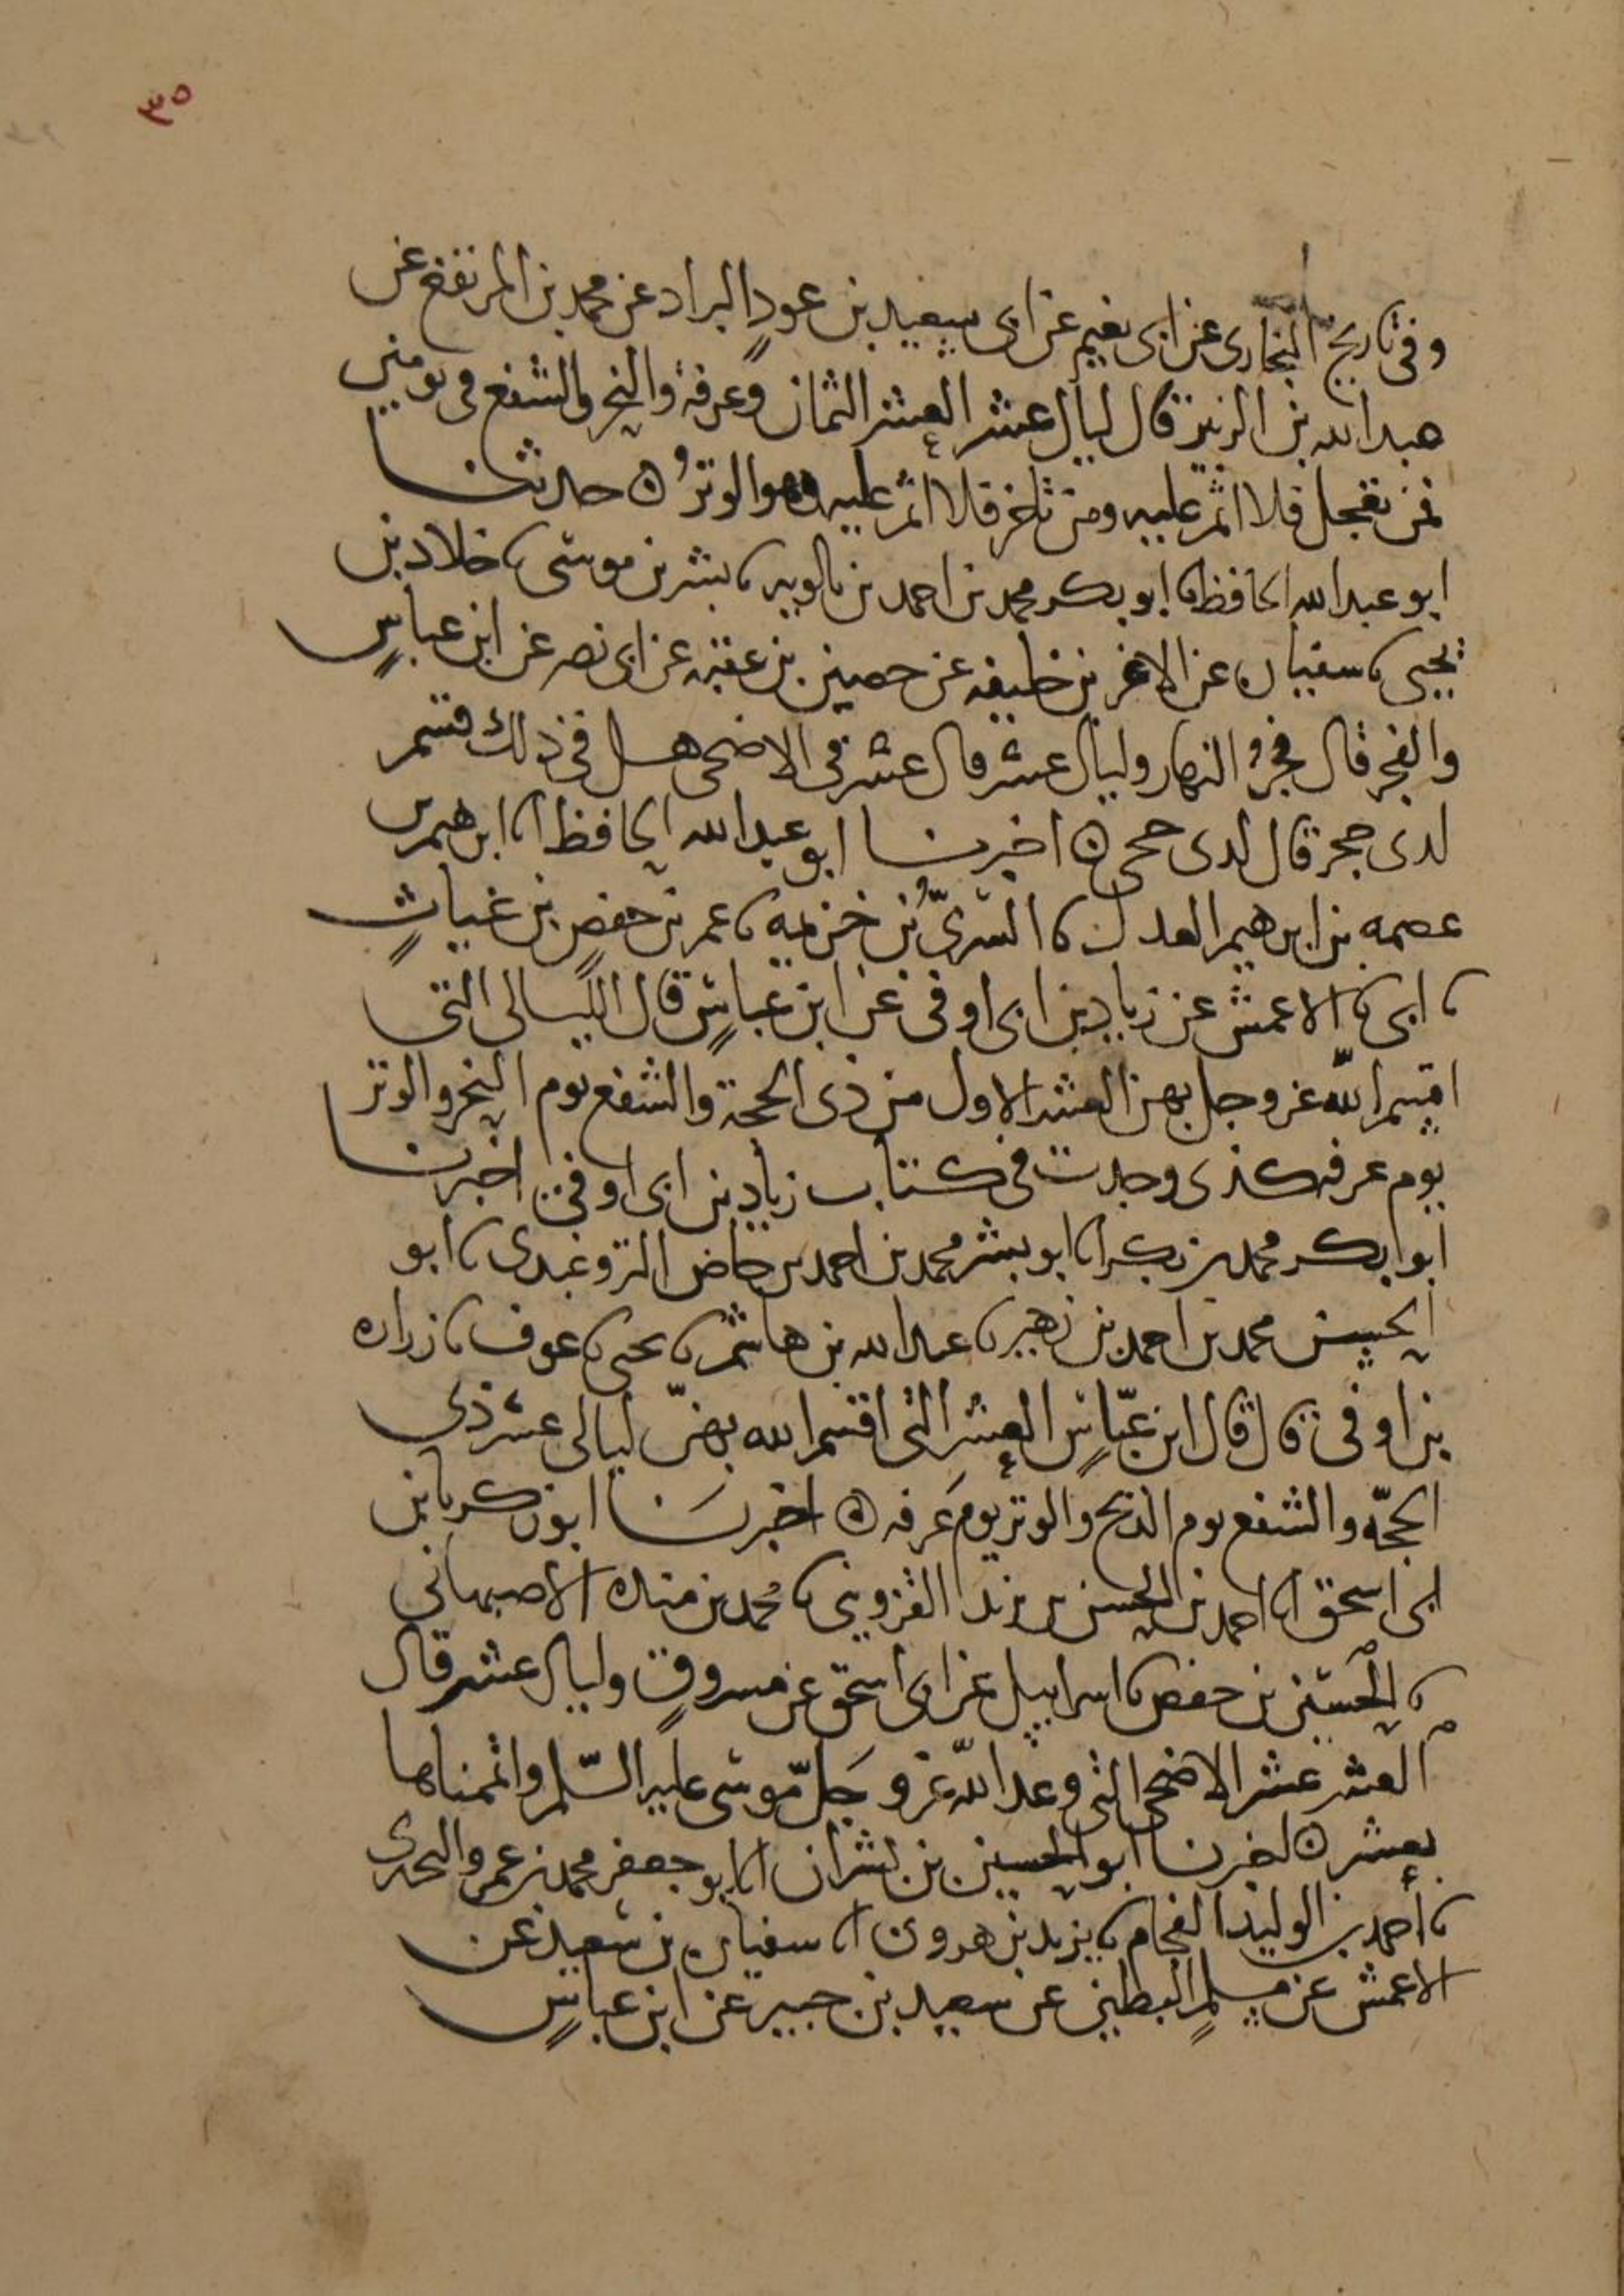 ٣٥
وفي تاريخ البخاري عن ابى نعيم عن ابى سعيد بن عوذٍ البراد عن محمد بن المرتفع عن
عبدالله بن الزبير قال ليال عشر العشر الثمان وعرفة والنحر والشفع فى يومين
فمن تعجل فلا اثم عليه ومن تاخر فلا اثم عليه وهو الوترُ ه حدثنا
ابو عبدالله الحافظ انا ابو بكر محمد بن احمد بن بالويه نا بشر بن موسى نا خلاد بن
يحيى نا سفيان عن الاغر بن خليفه عن حصين بن عقبه عن ابى نصر عن ابن عباسٍ
والفجر قال فجرُ النهار وليال عشر قال عشر فى الاضحى هل في ذلك قسم
لذى حجر قال لذى حجى ه اخبرنا ابو عبدالله الحافظ انا ابرهيم بن
عصمه بن ابرهيم العدل نا السريُّ بن خزيمه نا عمر بن حفص بن غياثٍ
نا ابى نا الاعمش عن زياد بن ابى اوفى عن ابن عباسٍ قال الليالى التى
اقسم الله عز وجل بهن العشر الاول من ذى الحجة والشفع يوم النحر والوتر
يوم عرفه كذى وجدت فى كتاب زياد بن ابى اوفى اخبرنا
ابوا بكر محمد بن بكر انا ابو بشر محمد بن احمد بن حاضر التروغبدى نا ابو
الحسن محمد بن احمد بن زهير نا عبدالله بن هاشم نا يحيى نا عوف نا زراره
بن اوفى قال قال ابن عبّاسٍ العشر التى اقسم الله بهنّ ليالى عشر ذي
الحجّه والشفع يوم الذبح والوتر يومَ عَرفه ه اخبرنا ابو زكريا بن
ابى اسحق انا احمد بن الحسن بن يزيد القزوينى نا محمد بن منده الاصبهانى
نا الحسين بن حفص نا اسراييل عن ابى اسحق عن مسروقٍ وليال عشر قال
العشر عشر الاضحى التى وعد اللّه عز وجلّ موسى عليه السّلم واتممناها
بعشر ه اخبرنا ابو الحسين بن بشران انا ابو جعفر محمد بن عمرو البحترى
نا احمد بن الوليد الفحام نا يزيد بن هرون انا سفيان بن سعيد عن
الاعمش عن مسلمٍ البطين عن سعيد بن جبير عن ابن عباسٍ